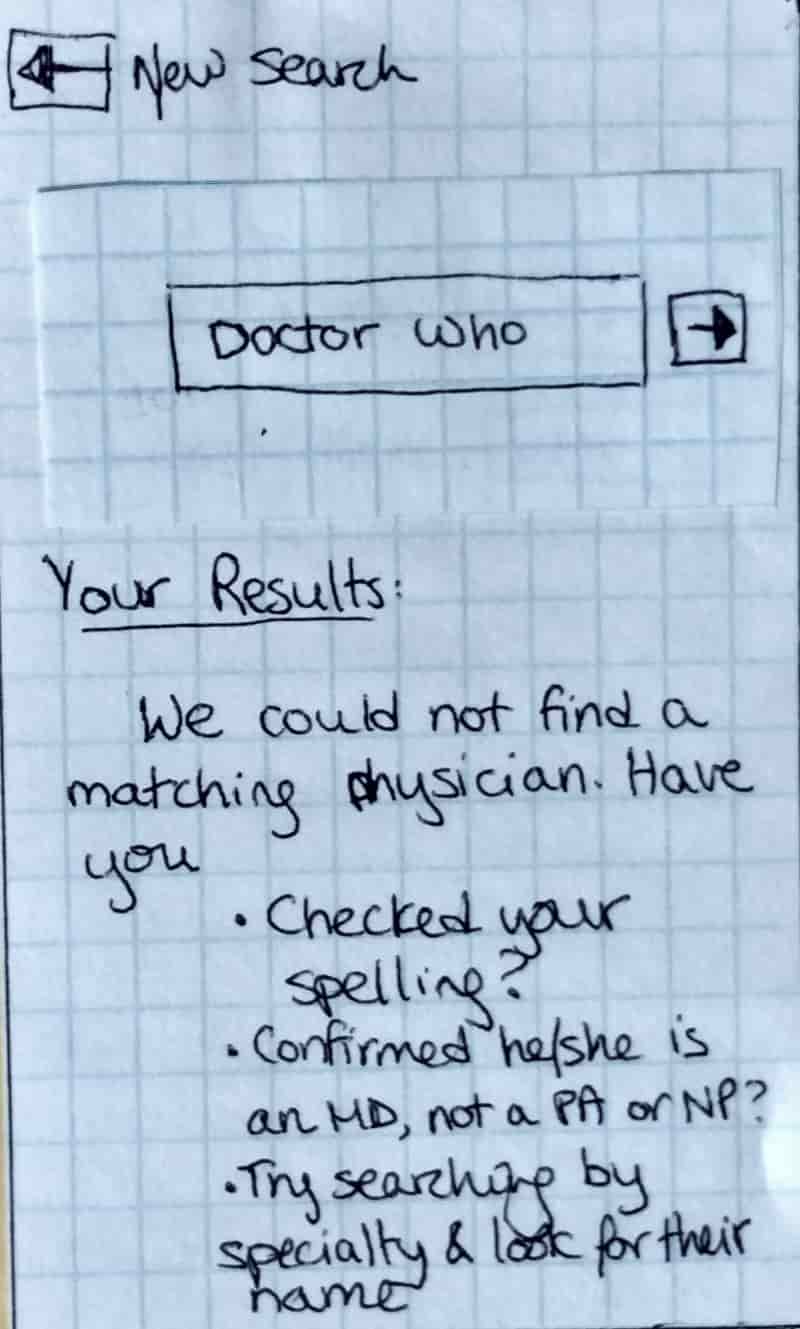 New Search
Doctor Who
Your Results:
We could not find a
matching physician. Have
you
• Checked your
spelling?
• Confirmed he/she is
an MD, not a PA or NP?
• Try searching by
specialty & look for their
name